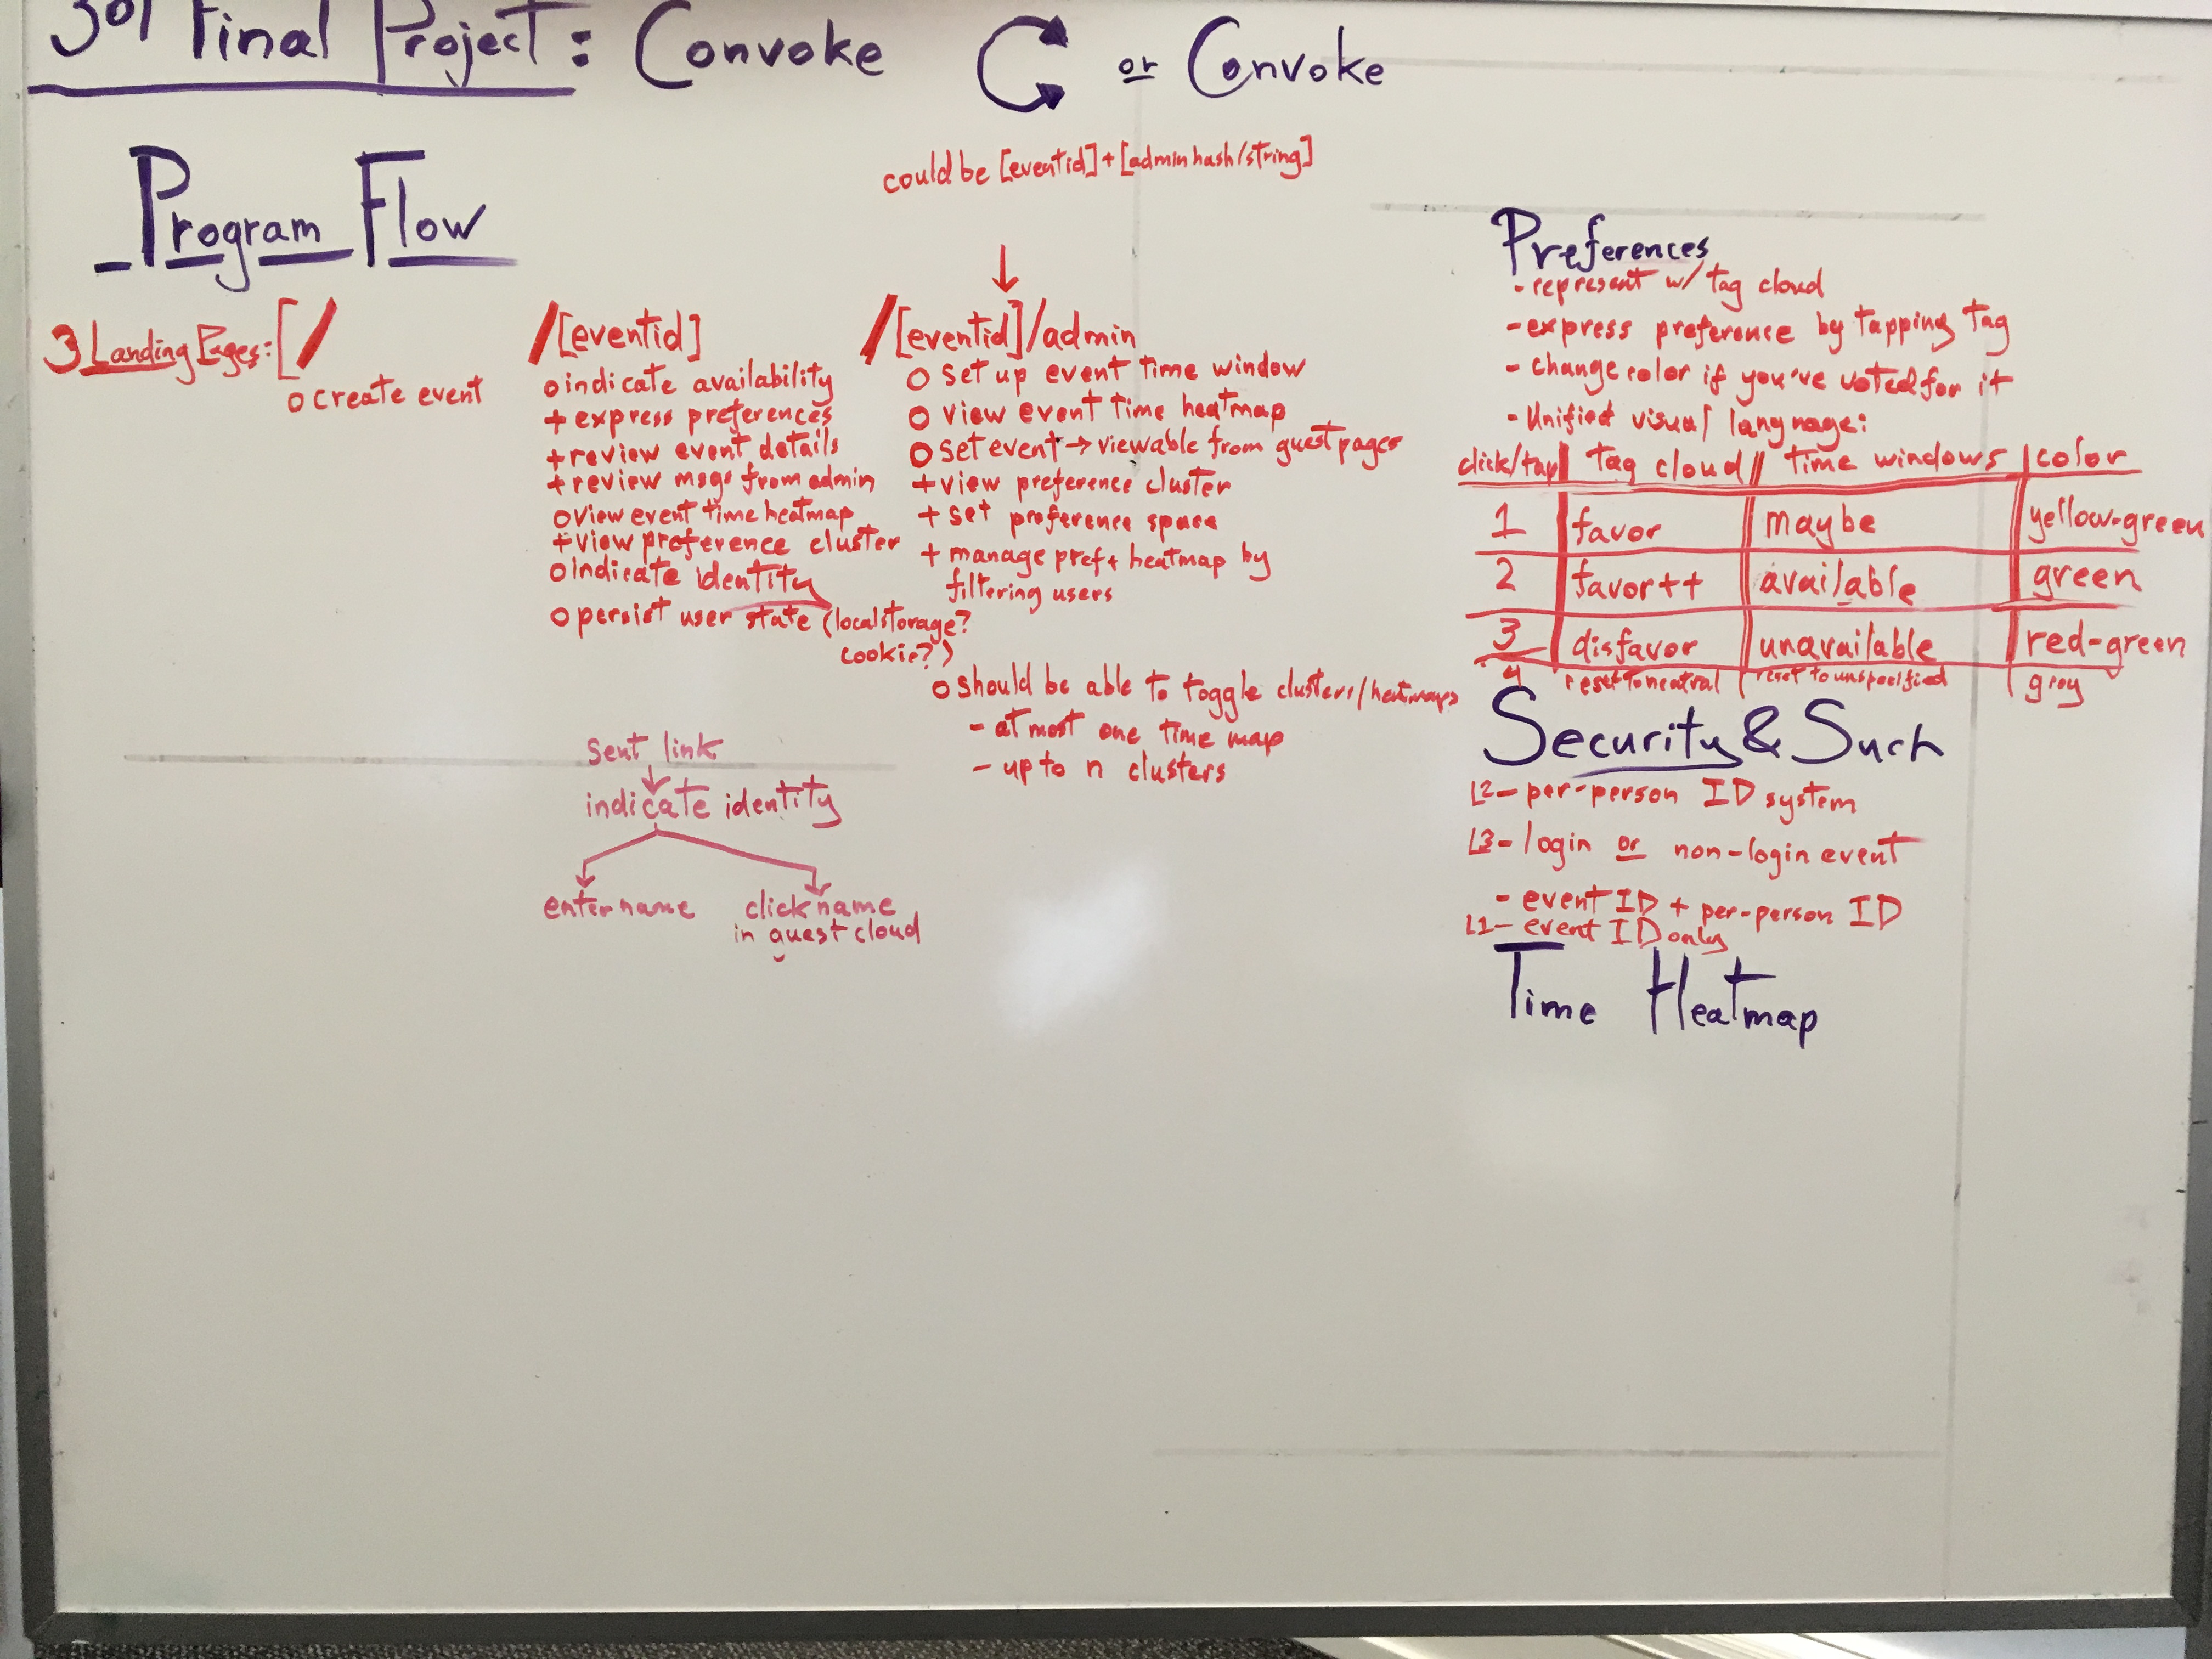 301 Final Project: Convoke C or Convoke
Program Flow
could be [eventid] + [admin hash/string]
3 Landing Pages: [/
o create event
/[eventid]
o indicate availability
+ express preferences
+ review event details
+ review msgs from admin
o view event time heatmap
+ view preference cluster
o indicate identity
o persist user state (localstorage?
cookie?)
/[eventid]/admin
o set up event time window
o view event time heatmap
o set event → viewable from guest pages
+ view preference cluster
+ set preference space
+ manage pref + heatmap by
filtering users
o should be able to toggle clusters/heatmaps
- at most one time map
- up to n clusters
sent link
indicate identity
enter name
click name
in guest cloud
Preferences
- represent w/ tag cloud
- express preference by tapping tag
- change color if you've voted for it
- Unified visual language:
click/tap | tag cloud || time windows | color
1 favor maybe yellow-green
2 favor++ available green
3 disfavor unavailable red-green
4 reset to neutral reset to unspecified gray
Security & Such
L2- per-person ID system
L3- login or non-login event
- event ID + per-person ID
L1- event ID only
Time Heatmap